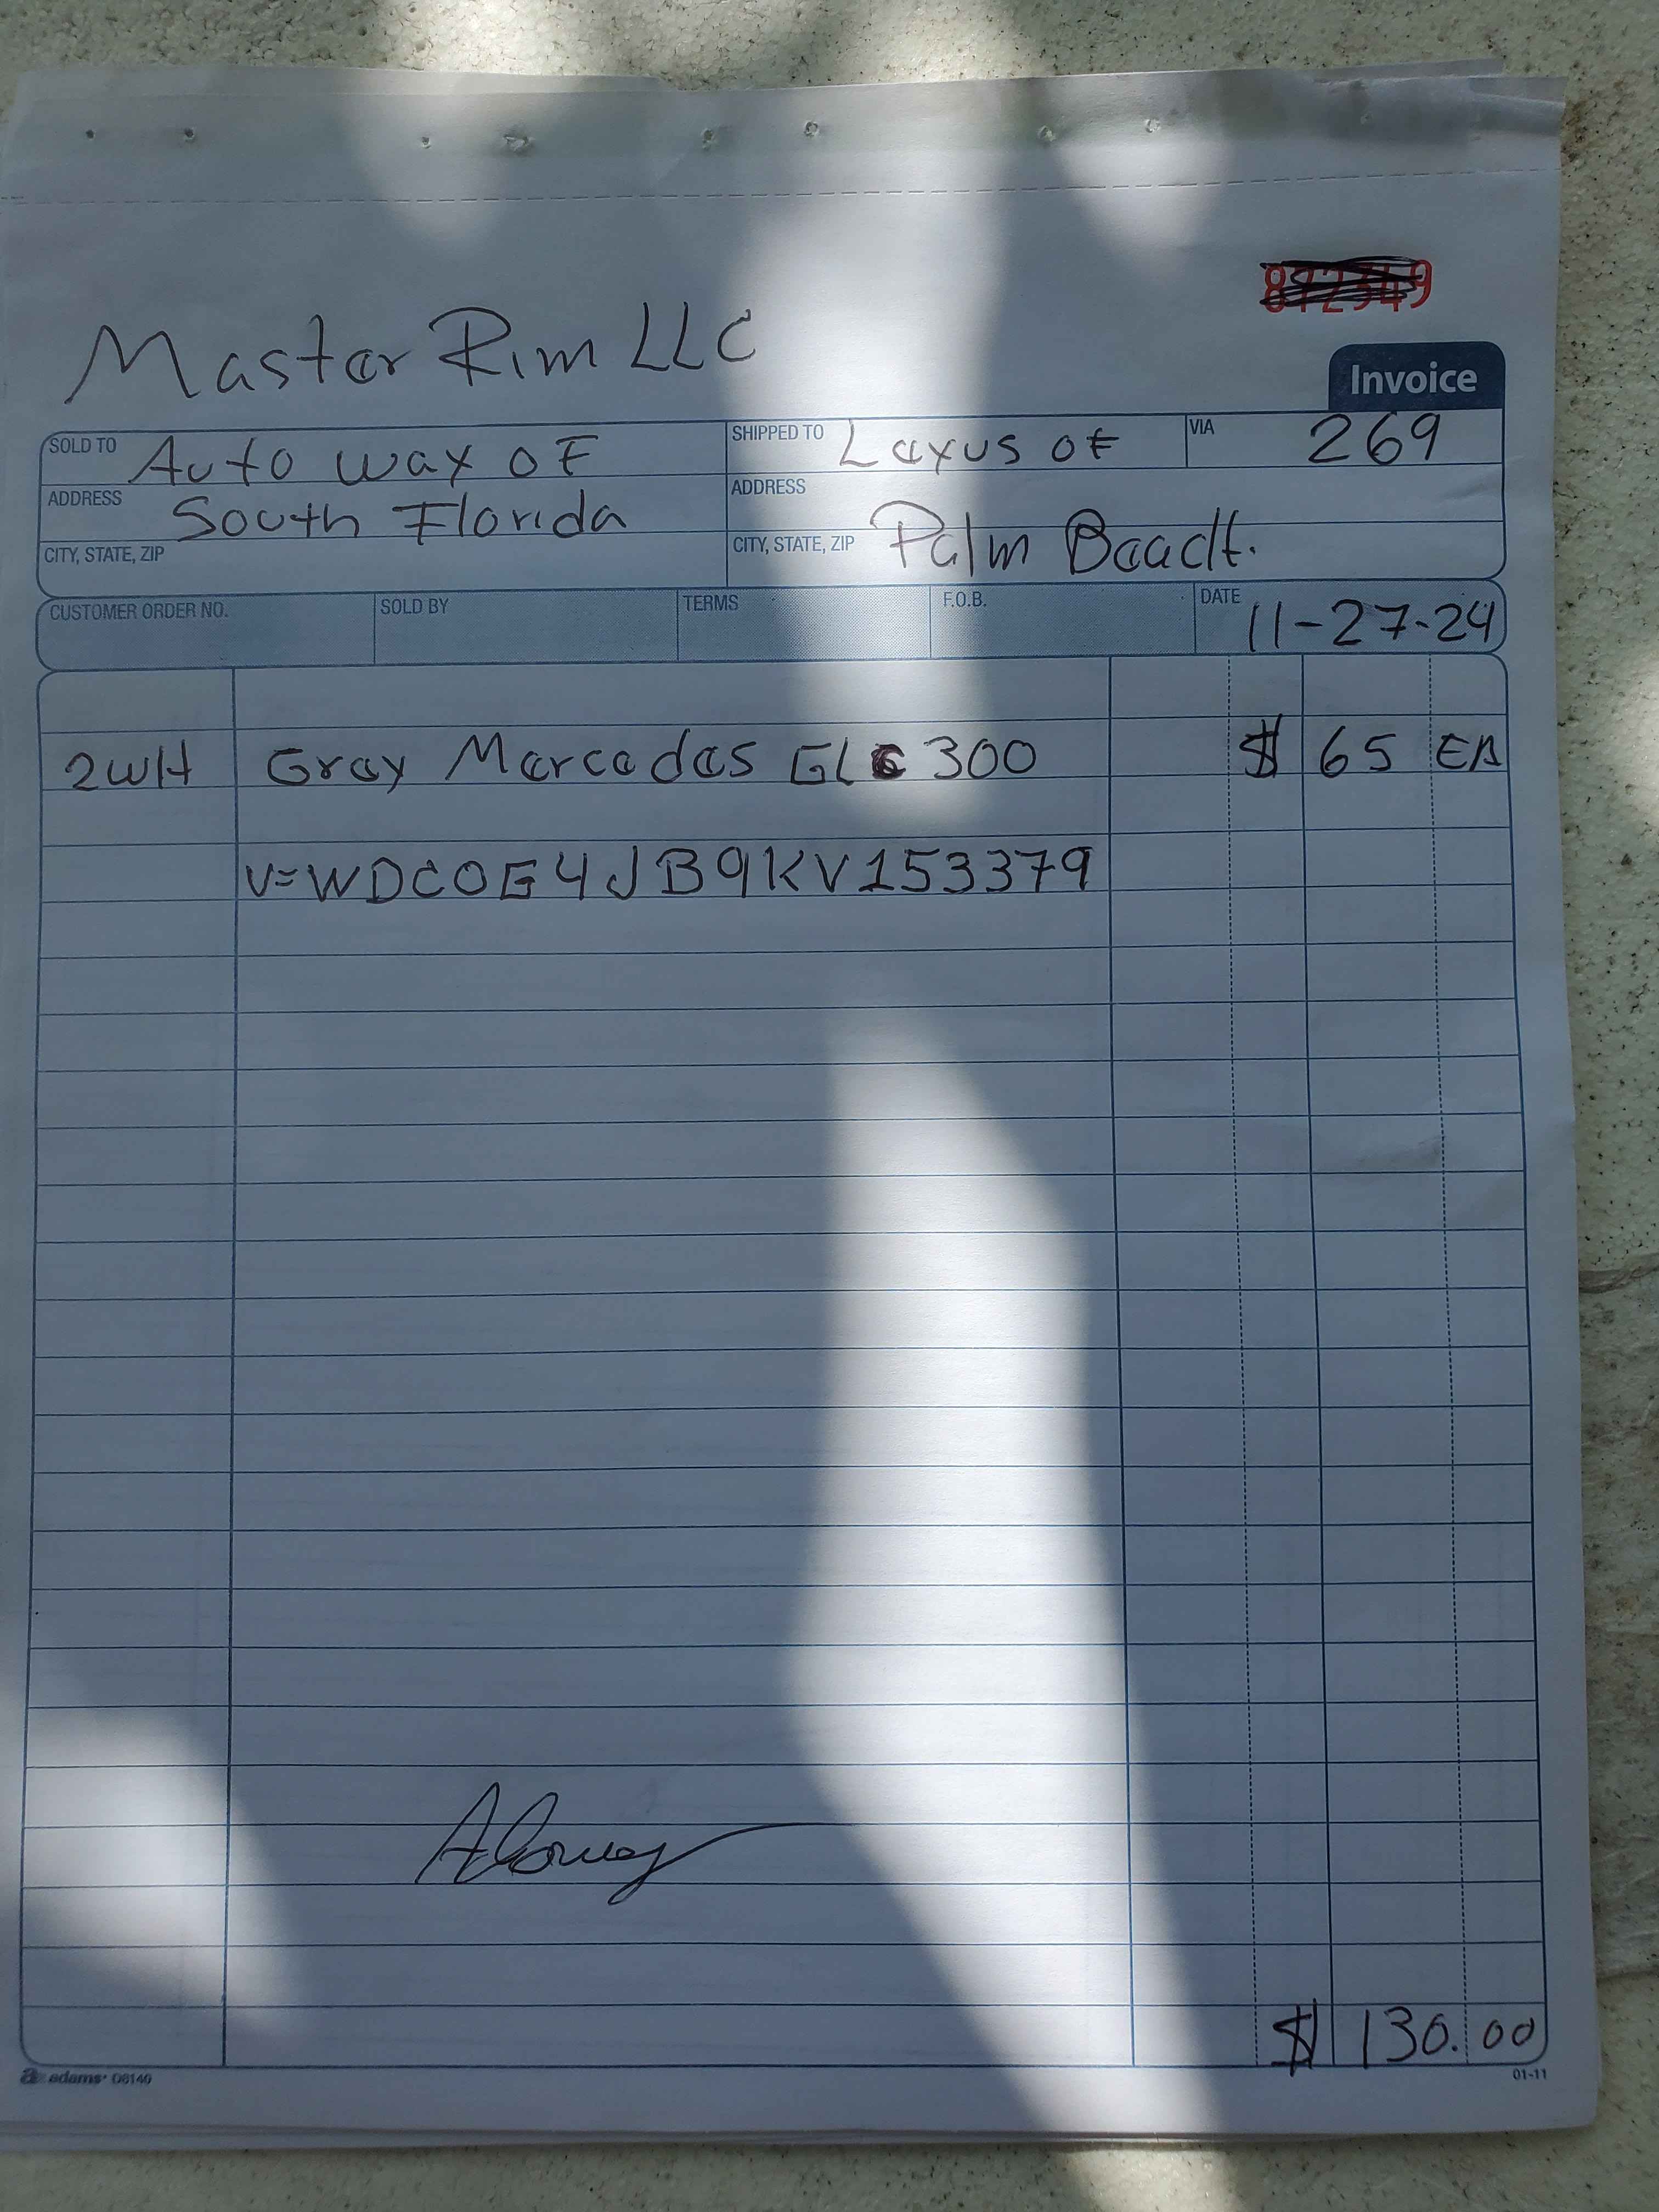 Master Rim LLC
Invoice
SOLD TO Auto Wax OF
SHIPPED TO Lexus OF
VIA 269
ADDRESS South Florida
ADDRESS
CITY, STATE, ZIP
CITY, STATE, ZIP Palm Beach.
CUSTOMER ORDER NO. SOLD BY TERMS F.O.B. DATE 11-27-24
2WH Gray Mercedes GLC 300 $ 65 EA
V=WDC0G4JB9KV153379
$ 130.00
adams D8140
01-11